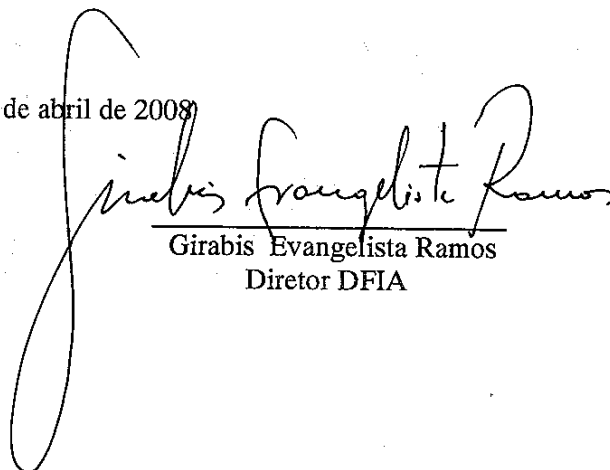 de abril de 2008
Girabis Evangelista Ramos
Girabis Evangelista Ramos
Diretor DFIA